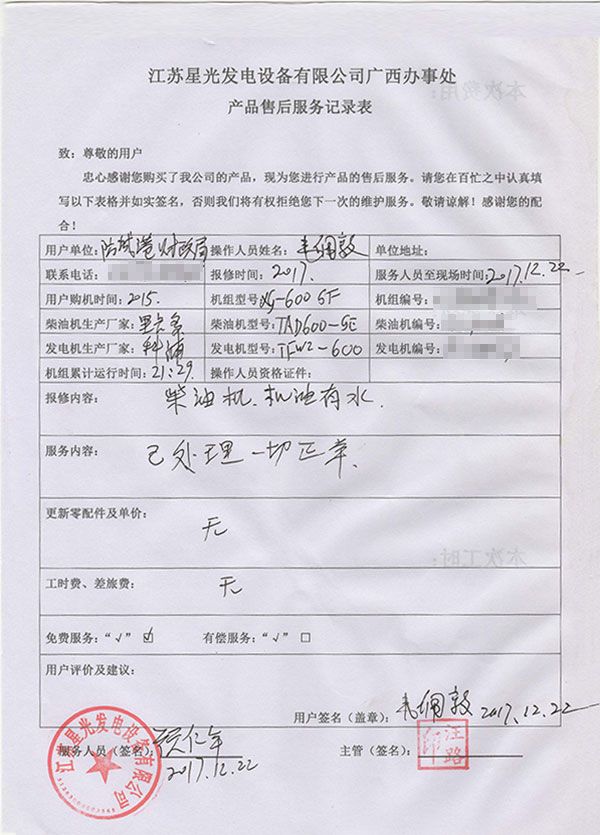 江苏星光发电设备有限公司广西办事处
产品售后服务记录表
致：尊敬的用户
忠心感谢您购买了我公司的产品，现为您进行产品的售后服务。请您在百忙之中认真填
写以下表格并如实签名，否则我们将有权拒绝您下一次的维护服务。敬请谅解！感谢您的配
合！
用户单位：防城港财政局 操作人员姓名： 单位地址：
联系电话： 报修时间：2017. 服务人员至现场时间：2017.12.22
用户购机时间：2015. 机组型号：XG-600GF 机组编号：
柴油机生产厂家： 柴油机型号：TAD600-GE 柴油机编号：
发电机生产厂家： 发电机型号：TFW2-600 发电机编号：
机组累计运行时间：21:29 操作人员资格证件：
报修内容： 柴油机、机油有水.
服务内容： 已处理一切正常.
更新零配件及单价： 无
工时费、差旅费： 无
免费服务：“√” ☑ 有偿服务：“√” □
用户评价及建议：
用户签名（盖章）： 2017.12.22
服务人员（签名）： 主管（签名）：
2017.12.22
江苏星光发电设备有限公司
汪路印
本次费用：
本次工时：